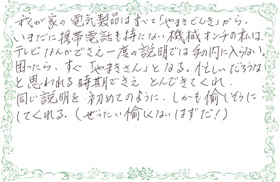 我が家の電気製品はすべて「やまきでんき」から。
いまだに携帯電話も持たない機械オンチの私は、
テレビなんかでさえ一度の説明では頭の内に入らない。
困ったら、すぐ「やまきさん」となる。忙しいだろうな
と思われる時期でさえ とんできてくれ、
同じ説明を 初めてのように、しかも愉しそうに
してくれる。(ぜったい愉しくないはずだ!)